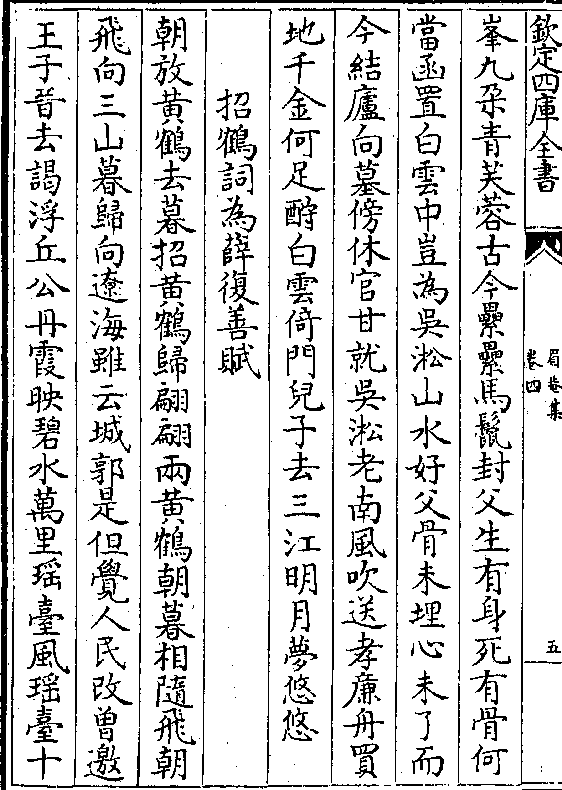 欽定四庫全書
眉菴集
卷四
五
峯九朶青芙蓉古今纍纍馬鬛封父生有身死有骨何
當函置白雲中豈為吳淞山水好父骨未埋心未了而
今結廬向墓傍休官甘就吳淞老南風吹送孝廉舟買
地千金何足酧白雲倚門兒子去三江明月夢悠悠
招鶴詞為薛復善賦
朝放黄鶴去暮招黄鶴歸翩翩兩黄鶴朝暮相隨飛朝
飛向三山暮歸向遼海雖云城郭是但覺人民改曾邀
王子晉去謁浮丘公丹霞映碧水萬里瑶臺風瑶臺十